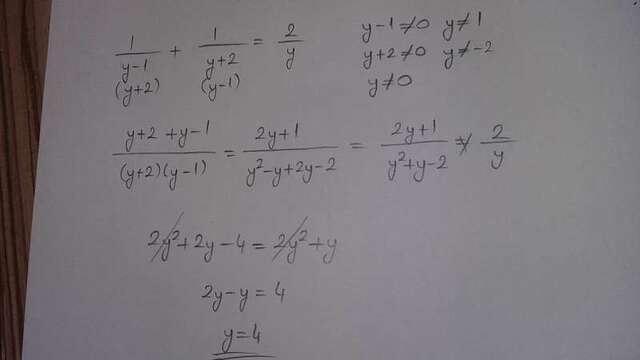 1/(y-1) + 1/(y+2) = 2/y
(y+2) (y-1)
y-1≠0 y≠1
y+2≠0 y≠-2
y≠0
(y+2+y-1)/((y+2)(y-1)) = (2y+1)/(y²-y+2y-2) = (2y+1)/(y²+y-2) = 2/y
2y²+2y-4=2y²+y
2y-y=4
y=4